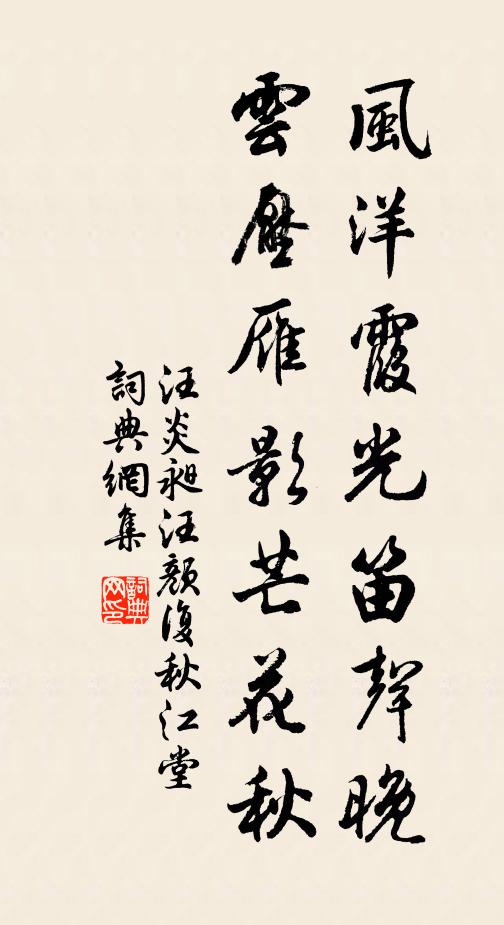 風洋霞光笛聲晚
雲壓雁影芒花秋
汪炎昶汪顏復秋江堂
詞典網集
詞典網印